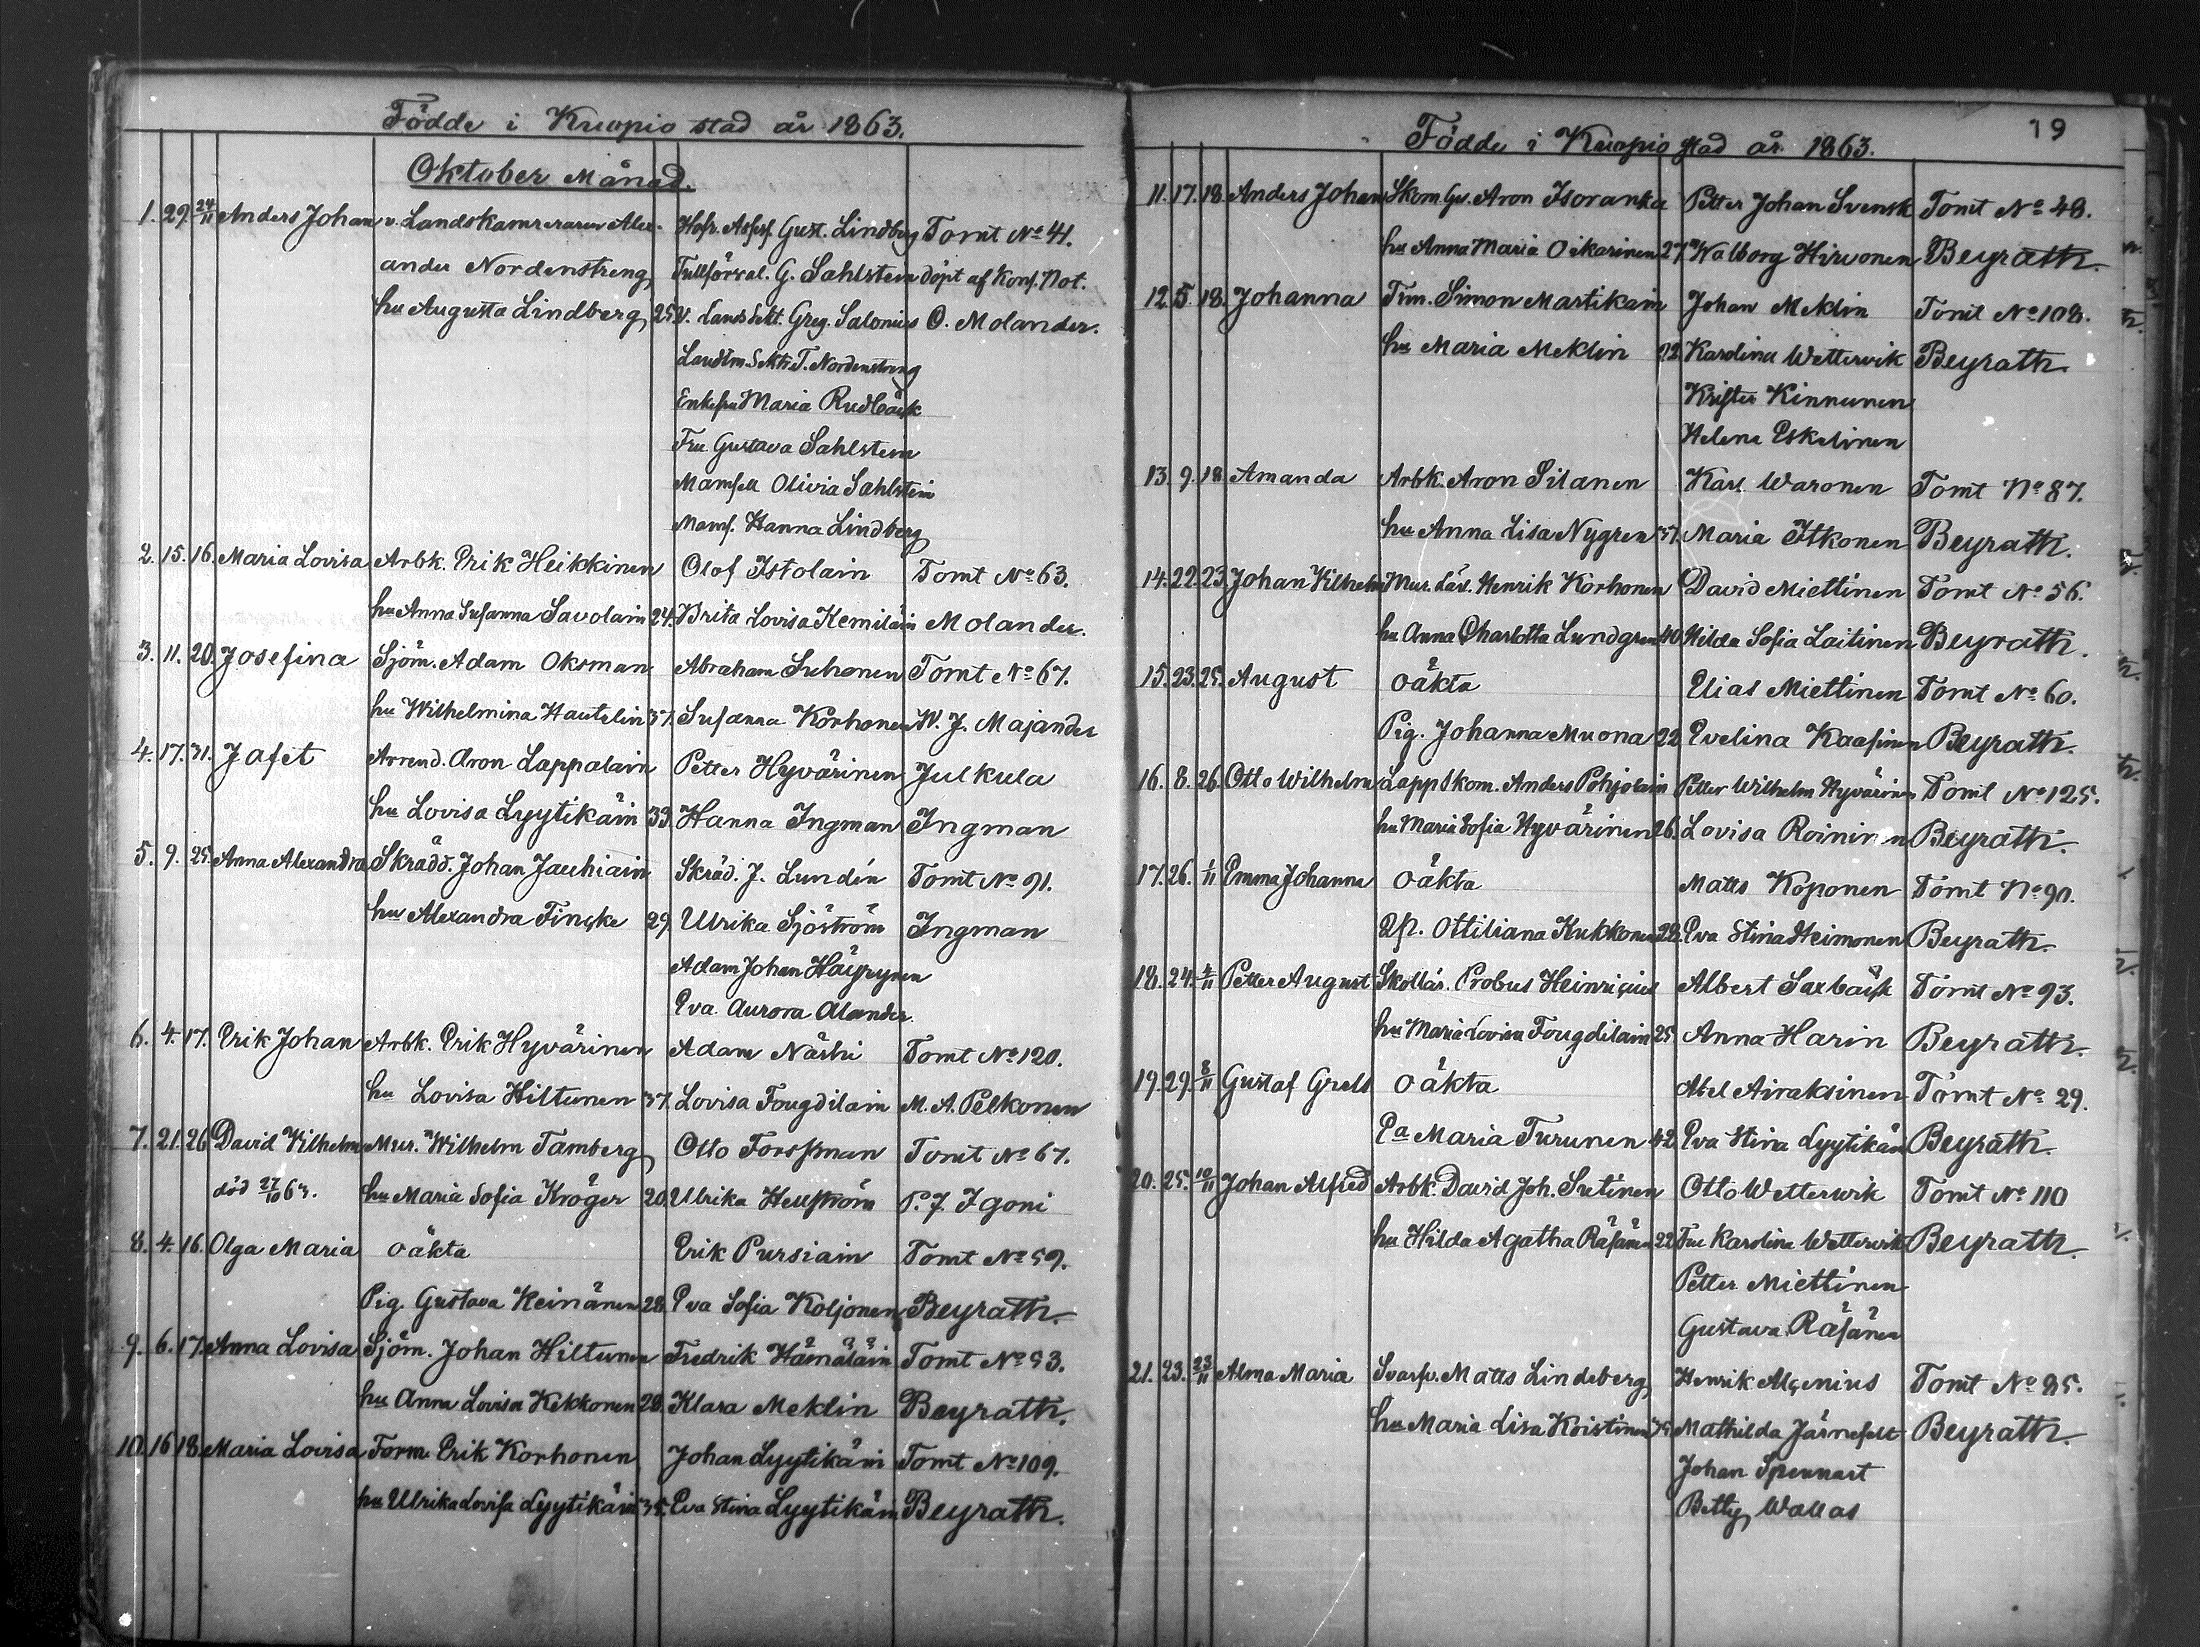 Födde i Kuopio stad år 1863.
Oktober Månad.
1. 29. 24/11 Anders Johan v. Landskamreraren Alex- Hofr. Assess. Gust. Lindberg Tomt No 41.
ander Nordenstreng, Tullförval. G. Sahlstein döpt af Kons. Not.
hu Augusta Lindberg, 25. V. Landssekt. Greg. Salonius O. Molander.
Landtm. Sekt. T. Nordenstreng
Enkefru Maria Rudbäck
Fru Gustava Sahlstein
Mamsell Olivia Sahlstein
Mams. Hanna Lindberg
2. 15. 16. Maria Lovisa Arbk. Erik Heikkinen Olof Istolain Tomt No 63.
hu Anna Susanna Savolain 24. Brita Lovisa Kemiläin Molander.
3. 11. 20. Josefina Sjöm. Adam Oksman Abraham Suhonen Tomt No 67.
hu Wilhelmina Hautelin 37. Susanna Korhonen W. J. Majander
4. 17. 31. Jafet Arrend. Aron Lappalain Petter Hyvärinen Julkula
hu Lovisa Lyytikäin 33. Hanna Ingman Ingman
5. 9. 25. Anna Alexandra Skrädd. Johan Jauhiain Skräd. J. Lundén Tomt No 91.
hu Alexandra Fincke 29. Ulrika Sjöström Ingman
Adam Johan Häyrynen
Eva Aurora Alander.
6. 4. 17. Erik Johan Arbk. Erik Hyvärinen Adam Närhi Tomt No 120.
hu Lovisa Hiltunen 37. Lovisa Fougdilain M. A. Pelkonen
7. 21. 26 David Vilhelm Mur. Wilhelm Tamberg Otto Forssman Tomt No 67.
död 27/10 63. hu Maria Sofia Kröger 20. Ulrika Hellström P. J. Igoni
8. 4. 16. Olga Maria oäkta Erik Pursiain Tomt No 59.
Pig. Gustava Keinänen 28. Eva Sofia Koljonen Beyrath.
9. 6. 17. Anna Lovisa Sjöm. Johan Hiltunen Fredrik Hämäläin Tomt No 53.
hu Anna Lovisa Kekkonen 28. Klara Meklin Beyrath.
10. 16 18. Maria Lovisa Form. Erik Korhonen Johan Lyytikäin Tomt No 109.
hu Ulrika Lovisa Lyytikäin 35. Eva Stina Lyytikäin Beyrath.
19
Födde i Kuopio stad år 1863.
11. 17. 18. Anders Johan Skom. Ges. Aron Isoranka Petter Johan Svensk Tomt No 48.
hu Anna Maria Oikarinen 27. Walborg Hirvonen Beyrath.
12. 5. 18. Johanna Tim. Simon Martikain Johan Meklin Tomt No 108.
hu Maria Meklin 22 Karolina Wetterwik Beyrath.
Krister Kinnunen
Helena Eskelinen
13. 9. 18 Amanda Arbk. Aron Silanen Karl Waronen Tomt No 87.
hu Anna Lisa Nygren 37. Maria Itkonen Beyrath.
14. 22. 23. Johan Vilhelm Mur. Lärl. Henrik Korhonen David Miettinen Tomt No 56.
hu Anna Charlotta Lundgren 40. Hilda Sofia Laitinen Beyrath.
15. 23. 25. August oäkta Elias Miettinen Tomt No 60.
Pig. Johanna Muona 22 Evelina Kaasinen Beyrath.
16. 8. 26. Otto Wilhelm Lappskom. Anders Pohjolain Petter Wilhelm Hyvärinen Tomt No 125.
hu Maria Sofia Hyvärinen 26. Lovisa Roininen Beyrath.
17. 26. 1/11 Emma Johanna oäkta Matts Koponen Tomt No 90.
Ottiliana Kukkonen 28. Eva Stina Heimonen Beyrath.
18. 24. 4/11 Petter August Skollär. Probus Heinricius Albert Saxbäck Tomt No 93.
hu Maria Lovisa Fougdilain 25. Anna Harin Beyrath.
19. 29. 8/11 Gustaf Grels oäkta Abel Airaksinen Tomt No 29.
Ea Maria Turunen 42. Eva Stina Lyytikäin Beyrath.
20. 25. 10/11 Johan Alfred Arbk. David Joh. Sutinen Otto Wetterwik Tomt No 110
hu Hilda Agatha Räsänen 22. Fru Karolina Wetterwik Beyrath.
Petter Miettinen
Gustava Räsänen
21. 23. 23/11 Alma Maria Svarfv. Matts Lindeberg Henrik Alcenius Tomt No 85.
hu Maria Lisa Koistinen 35 Mathilda Järnefelt Beyrath.
Johan Spennart
Betty Wallas